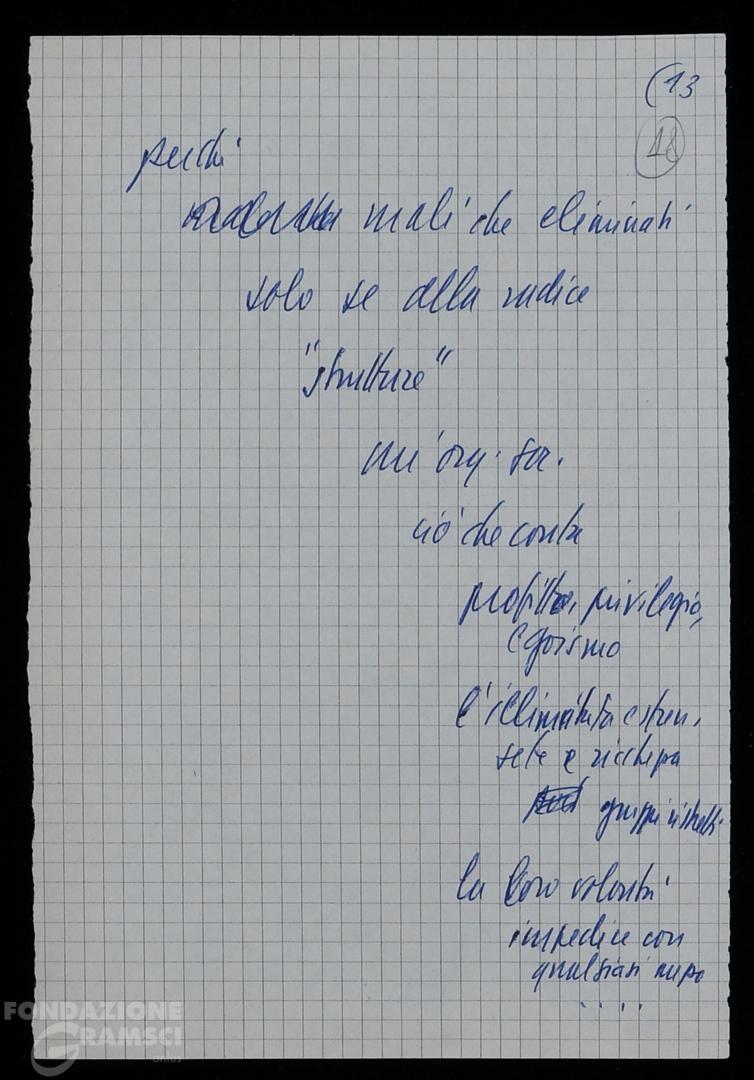 (13
18
perché
mali che eliminati
solo se alla radice
"strutture"
un' org. soc.
ciò che conta
profitto, privilegio,
egoismo
l'illimitata esten.
sete e ricchezza
gruppi ristretti
la loro volontà
impedire con
qualsiasi mezzo
....
FONDAZIONE
GRAMSCI
onlus